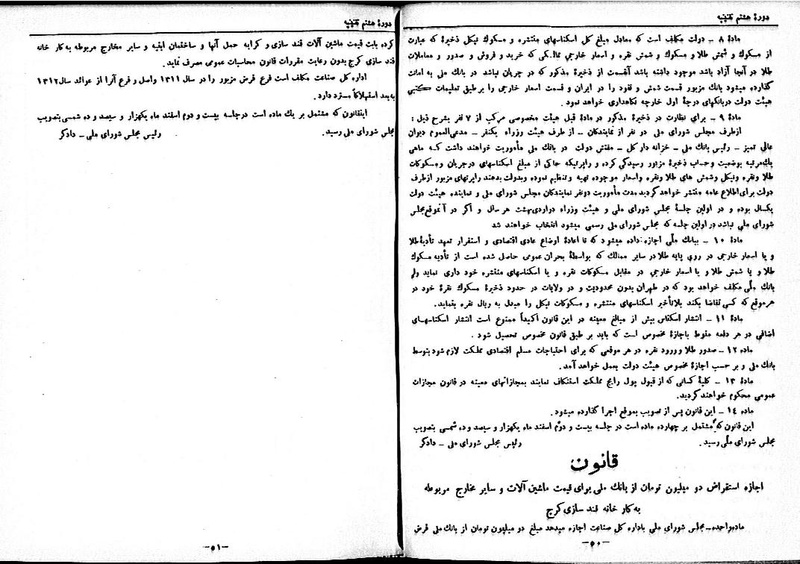 دورهٔ هشتم تقنینیه
مادهٔ ۸ – دولت مکلف است که معادل مبلغ کل اسکناسهای منتشره و مسکوک نیکل ذخیرهٔ که عبارت
از مسکوک و شمش طلا و مسکوک و شمش نقره و اسعار خارجی ممالکی که خرید و فروش و صدور و معاملات
طلا در آنجا آزاد باشد موجود داشته باشد آنقسمت از ذخیرهٔ مذکور که در جریان نباشد در بانک ملی به امانت
گذارده میشود بانک مزبور قسمت شمش و نقود را در ایران و قسمت اسعار خارجی را بر طبق تعلیمات کتبی
هیئت دولت دربانکهای درجهٔ اول خارجه نگاهداری خواهد نمود .
مادهٔ ۹ – برای نظارت در ذخیرهٔ مذکور در مادهٔ قبل هیئت مخصوصی مرکب از ۷ نفر بشرح ذیل :
ازطرف مجلس شورای ملی دو نفر از نمایندگان – از طرف هیئت وزراء یکنفر – مدعی‌العموم دیوان
عالی تمیز – رئیس بانک ملی – خزانه دار کل – مفتش دولت در بانک ملی مأموریت خواهند داشت که ماهی
یک‌مرتبه بوضعیت وحساب ذخیرهٔ مزبور رسیدگی کرده و راپرتیکه حاکی از مبلغ اسکناسهای درجریان ومسکوکات
طلا ونقره ونیکل وشمش های طلا ونقره واسعار موجوده تهیه وتنظیم نموده وبدولت بدهند راپرتهای مزبور ازطرف
دولت برای‌اطلاع عامه منتشر خواهد گردید مدت مأموریت دونفر نمایندگان مجلس شورای ملی و نماینده هیئت دولت
یکسال بوده و در اولین جلسهٔ مجلس شورای ملی و هیئت وزراء دراردی‌بهشت هر سال و اگر در آنموقع مجلس
شورای ملی نباشد در اولین جلسه که مجلس شورای ملی رسمی میشود انتخاب خواهند شد
مادهٔ ۱۰ – ببانک ملّی اجازه داده میشود که تا اعادهٔ اوضاع عادی اقتصادی و استقرار تعهد تأدیهٔ طلا
و یا اسعار خارجی در روی پایه طلا در سایر ممالک که بواسطهٔ بحران عمومی حاصل شده است از تأدیه مسکوک
طلا و یا شمش طلا و با اسعار خارجی در مقابل مسکوکات نقره و یا اسکناسهای منتشره خود داری نماید ولی
بانک ملّی مکلف خواهد بود که در طهران بدون محدودیت و در ولایات در حدود ذخیرهٔ مسکوک نقرهٔ خود در
هر موقع که کسی تقاضا بکند بلاتأخیر اسکناسهای منتشره و مسکوکات نیکل را مبدل به ریال نقره بنماید.
مادهٔ ۱۱ – انتشار اسکناس بیش از مبالغ معینه در این قانون اکیداً ممنوع است انتشار اسکناسهای
اضافی در هر دفعه منوط باجازهٔ مخصوص است که باید بر طبق قانون مخصوص تحصیل شود .
ماده ۱۲ – صدور طلا و ورود نقره در هر موقعی که برای احتیاجات مسلم اقتصادی مملکت لازم شود بتوسط
بانک ملی و بر حسب اجازهٔ مخصوص هیئت دولت بعمل خواهد آمد.
مادهٔ ۱۳ – کلیهٔ کسانی که از قبول پول رایج مملکت استنکاف نمایند بمجازاتهای معینه در قانون مجازات
عمومی محکوم خواهند گردید.
ماده ۱۴ – این قانون پس از تصویب بموقع اجرا گذارده میشود.
این قانون که مشتمل بر چهارده ماده است در جلسه بیست و دوّم اسفند ماه یکهزار و سیصد و ده شمسی بتصویب
مجلس شورای ملّی رسید. رئیس مجلس شورای ملی – دادگر
قانون
اجازه استقراض دو میلیون تومان از بانک ملی برای قیمت ماشین آلات و سایر مخارج مربوطه
به کار خانه قند سازی کرج
ماده‌واحده–مجلس شورای ملی باداره کل صناعت اجازه میدهد مبلغ دو میلیون تومان از بانک ملی قرض
-۵۰-
دورهٔ هشتم تقنینیه
کرده بابت قیمت ماشین آلات قند سازی و کرایه حمل آنها و ساختمان ابنیه و سایر مخارج مربوطه به کار خانه
قند سازی کرج بدون رعایت مقررات قانون محاسبات عمومی مصرف نماید.
اداره کل صناعت مکلف است فرع قرض مزبور را در سال ۱۳۱۱ واصل و فرع آنرا از عوائد سال ۱۳۱۲
به بعد استهلاکاً مسترد دارد.
اینقانون که مشتمل بر یک ماده است درجلسه بیست و دوم اسفند ماه یکهزار و سیصد و ده شمسی بتصویب
مجلس شورای ملی رسید. رئیس مجلس شورای ملی – دادگر
-۵۱-